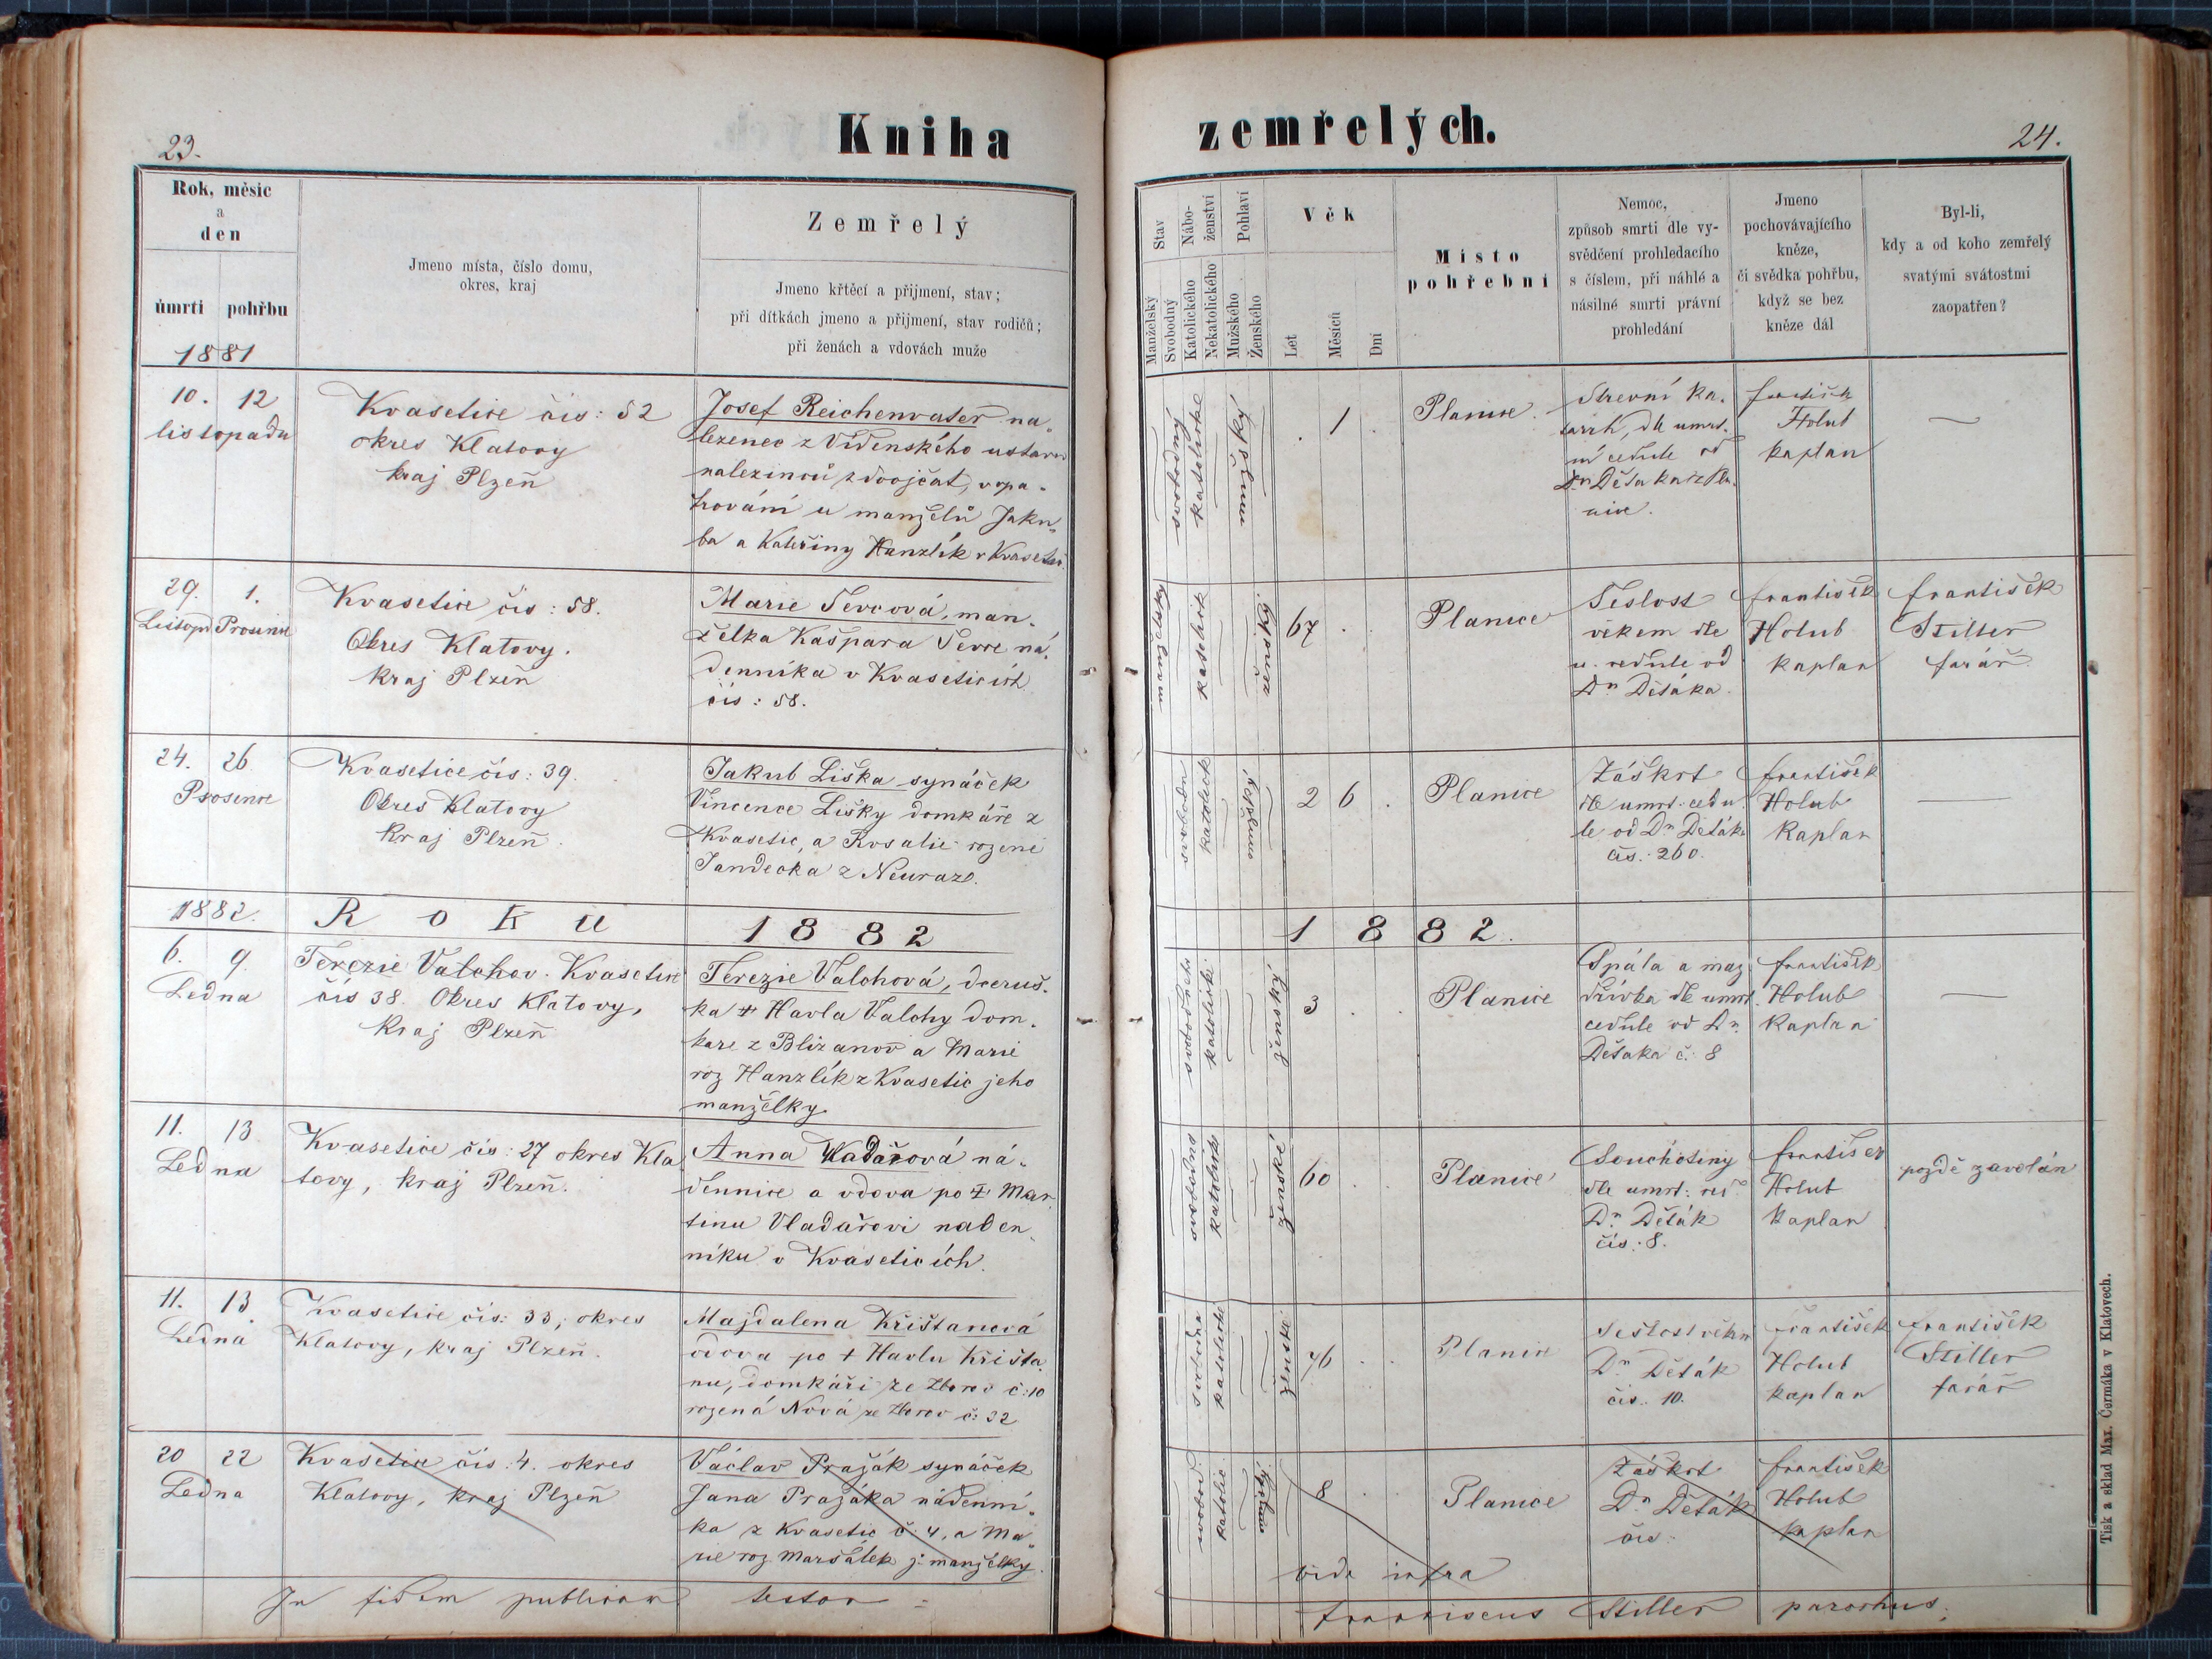 23.
Kniha
Rok, měsíc
a
den
úmrti pohřbu
1881
Jmeno místa, číslo domu,
okres, kraj
Zemřelý
Jmeno křtěcí a přijmení, stav;
při dítkách jmeno a přijmení, stav rodičů;
při ženách a vdovách muže
10. 12
listopadu
Kvasetice čís: 52
okres Klatovy
kraj Plzeň
Josef Reichenvater na-
lezenec z Vídenského ustavu
nalezinců z dvojčat, v opa-
trování u manželů Jaku-
ba a Kateřiny Hanzlík v Kvasetic.
29. 1.
Listopd Prosince
Kvasetice čís: 58.
Okres Klatovy.
kraj Plzeň
Marie Sevcová, man-
želka Kašpara Sevce ná-
denníka v Kvaseticích
čís: 58.
24. 26
Prosince
Kvasetice čís: 39.
Okres Klatovy
Kraj Plzeň.
Jakub Liška synáček
Vincence Lišky domkáře z
Kvasetic, a Rosalie rozené
Jandečka z Neuraz.
1882.
Roku
1882
6. 9.
Ledna
Terezie Valchov. Kvasetice
čís 38. Okres Klatovy,
Kraj Plzeň
Terezie Valchová, dceruš-
ka + Havla Valchy dom-
kare z Blizanov a Marie
roz Hanzlík z Kvasetic jeho
manželky.
11. 13
Ledna
Kvasetice čís: 27 okres Kla
tovy, kraj Plzeň.
Anna Vladařová ná-
dennice a vdova po + Mar
tinu Vladařovi naden-
níku v Kvaseticích.
11. 13
Ledna
Kvasetice čís: 33, okres
Klatovy, kraj Plzeň.
Majdalena Křištanová
vdova po + Havlu Křišta
nu, domkáři ze Zborov č: 10
rozená Nová ze Zborov č: 32
20 22
Ledna
Kvasetice čís: 4. okres
Klatovy, kraj Plzeň
Václav Pražák synáček
Jana Pražáka nádenní-
ka z Kvasetic č: 4, a Ma-
rie roz Maršálek j. manželky.
In fidem publicam testor
zemřelých.
24.
Stav
Manželský
Svobodný
Nábo-
ženství
Katolického
Nekatolického
Pohlaví
Mužského
Ženského
Věk
Let
Měsíců
Dní
Místo
pohřební
Nemoc,
způsob smrti dle vy-
svědčení prohledacího
s číslem, při náhlé a
násilné smrti právní
prohledání
Jmeno
pochovávajícího
kněze,
či svědka pohřbu,
když se bez
kněze dál
Byl-li,
kdy a od koho zemřelý
svatými svátostmi
zaopatřen?
svobodný
katolické
1
Planice.
Strevní ka-
tarrh, dle umrt-
ní cedule od
Dra Dětaka z Pla-
nice.
františek
Holub
kaplan
—
katolick
ženský
67
Planice
Sešlost
věkem dle
u. cedule od
Dra Dětáka.
františek
Holub
kaplan
františek
Stiller
farář
katolick
2 6
Planice
Záškrt
dle umrt. cedu
le od Dra Dětáka
čís.: 260.
františek
Holub
Kaplan
—
1882.
katolické
ženský
3
Planice
Spála a maz
dřívka dle umrt.
cedule od Dra
Dětaka č: 8
františek
Holub
Kaplan
—
svobodná
ženské
60
Planice
Souchotiny
dle umrt: ced
Dr Děták
čís: 8.
Holub
kaplan
pozdě zavolán
ženské
76
Planice
Sešlost věkem
Dr Děták
čís. 10.
františek
Holub
kaplan
františek
Stiller
farář
svobod
katolic
8
Planice
Záškrt
Dr Děták
čís:
františek
Holub
kaplan
vide infra
franciscus Stiller parochus.
Tisk a sklad Max. Čermáka v Klatovech.